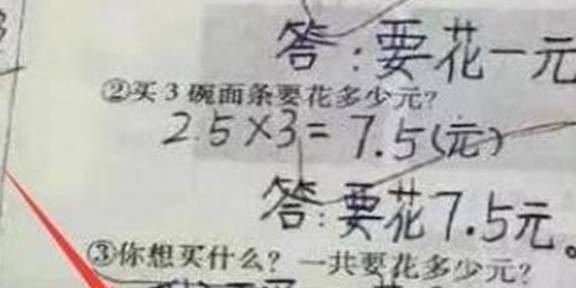 答：要花一元
②买3碗面条要花多少元？
2.5×3=7.5(元)
答：要花7.5元。
③你想买什么？一共要花多少元？